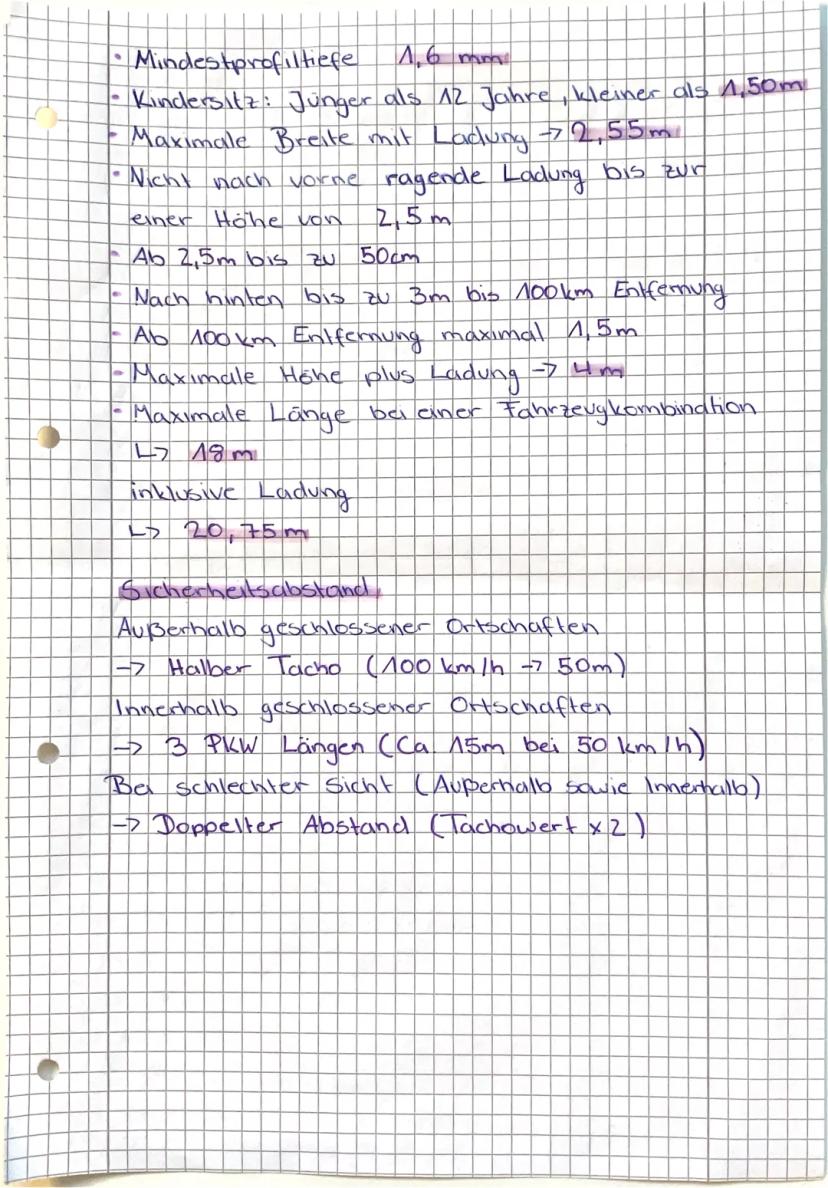 • Mindestprofiltiefe 1,6 mm
• Kindersitz: Jünger als 12 Jahre, kleiner als 1,50m
• Maximale Breite mit Ladung -> 2,55m
• Nicht nach vorne ragende Ladung bis zur
einer Höhe von 2,5m
• Ab 2,5m bis zu 50cm
• Nach hinten bis zu 3m bis 100km Entfernung
• Ab 100km Entfernung maximal 1,5m
• Maximale Höhe plus Ladung -> 4m
• Maximale Länge bei einer Fahrzeugkombination
↳ 18m
inklusive Ladung
↳ 20,75m
Sicherheitsabstand
Außerhalb geschlossener Ortschaften
-> Halber Tacho (100 km/h -> 50m)
Innerhalb geschlossener Ortschaften
-> 3 PKW Längen (Ca. 15m bei 50 km/h)
Bei schlechter Sicht (Außerhalb sowie Innerhalb)
-> Doppelter Abstand (Tachowert x2)